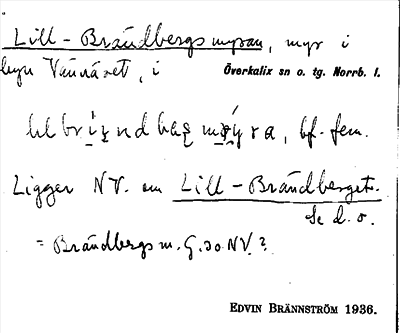 Lill-Brändbergsmyran, myr i
byn Vännäset, i Överkalix sn o. tg. Norrb. l.
bf. fem.
Ligger NV. om Lill-Brändberget.
Se d. o.
= Brändbergsm. G.30 NV.?
EDVIN BRÄNNSTRÖM 1936.